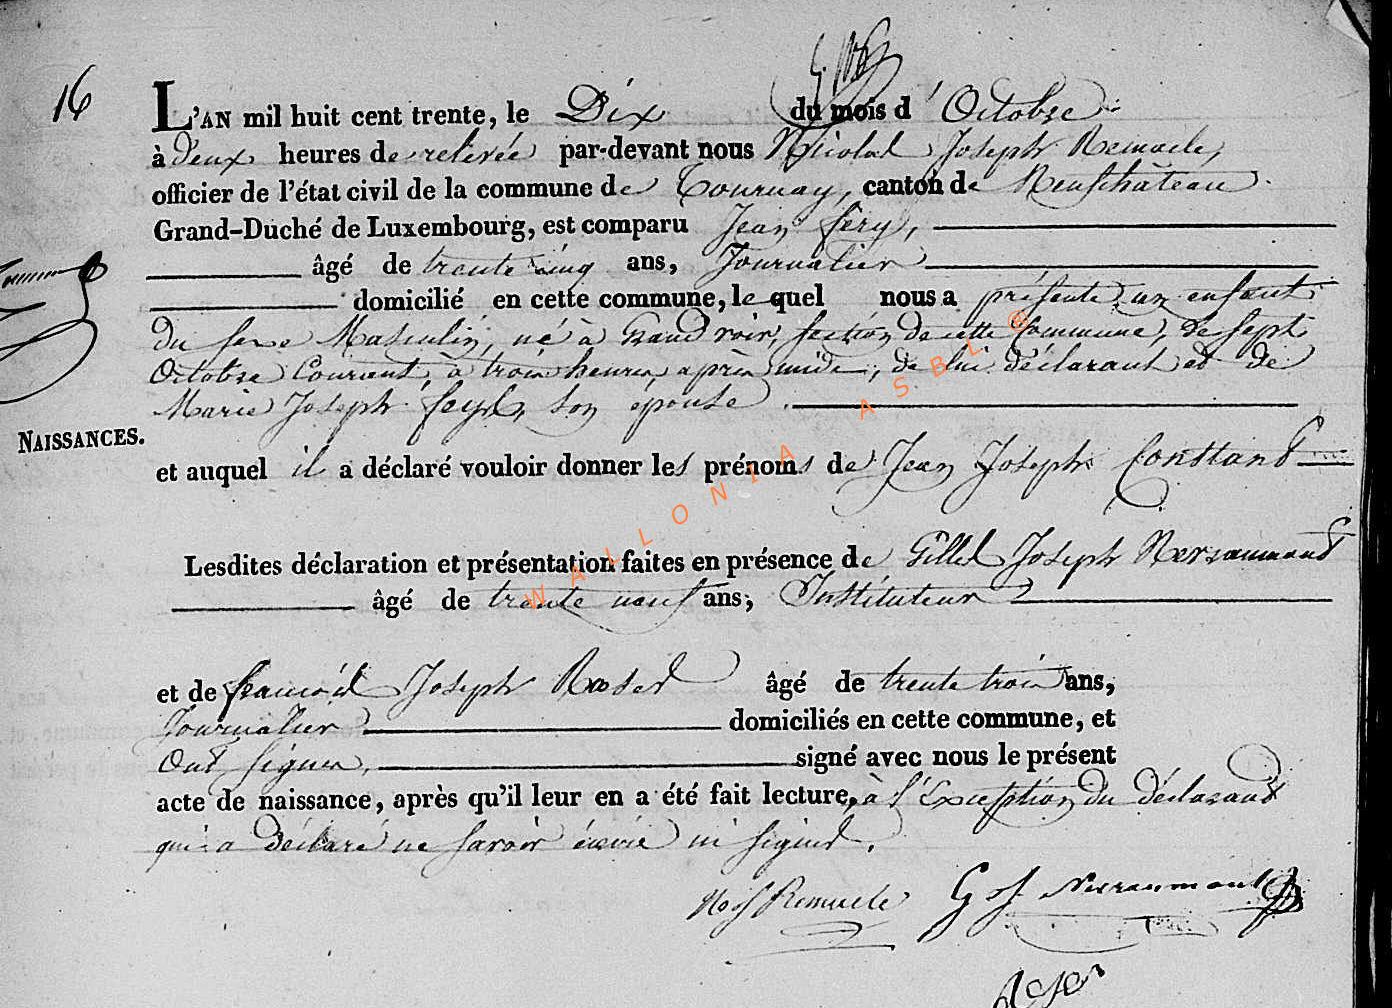 16
L'AN mil huit cent trente, le Dix du mois d'Octobre
à deux heures de relevée par-devant nous Nicolas Joseph Remacle,
officier de l'état civil de la commune de Tournay, canton de Neufchâteau.
Grand-Duché de Luxembourg, est comparu Jean fery,
âgé de trente cinq ans, Journalier
domicilié en cette commune, le quel nous a présenté un enfant
du sexe Masculin, né à Grandvoir, section de cette Commune, le sept
Octobre Courant, à trois heures après midi, de lui déclarant et de
Marie Joseph son épouse.
NAISSANCES.
et auquel il a déclaré vouloir donner les prénoms de Jean Joseph Constant
Lesdites déclaration et présentation faites en présence de Gilles Joseph Nerzaumont
âgé de trente neuf ans, Instituteur
et de francois Joseph Roser âgé de trente trois ans,
Journalier domiciliés en cette commune, et
Ont signer, signé avec nous le présent
acte de naissance, après qu'il leur en a été fait lecture, à l'Exception du déclarant
qui a déclaré ne savoir écrire ni signer.
Remacle G J Nerzaumont
Roser
WALLONIA ASBL ®